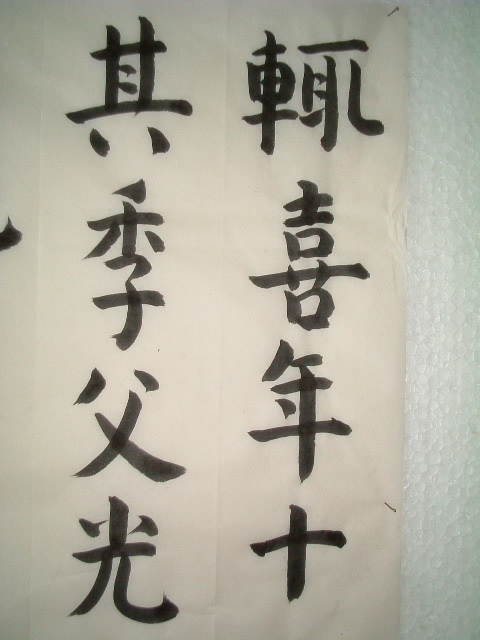 輒喜年十
其季父光